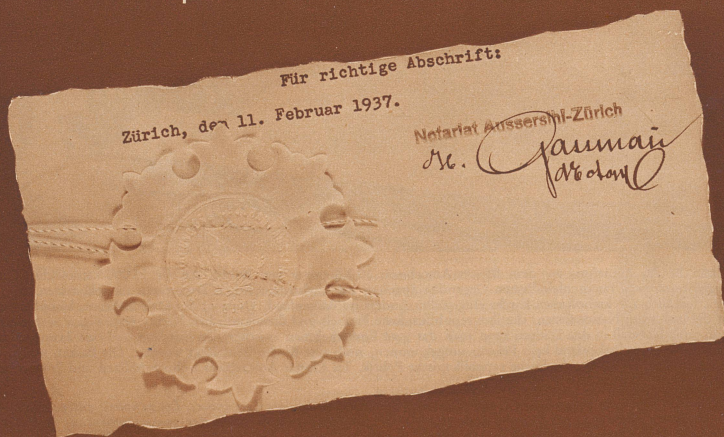 Für richtige Abschrift:
Zürich, den 11. Februar 1937.
Notariat Aussersihl-Zürich
Notar